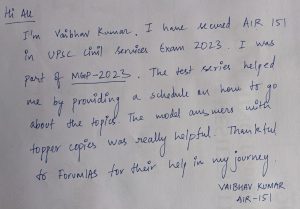 Hi All
I'm Vaibhav Kumar. I have secured AIR 151
in UPSC Civil Services Exam 2023. I was
part of MGP-2023. The test series helped
me by providing a schedule on how to go
about the topics. The model answers with
topper copies was really helpful. Thankful
to ForumIAS for their help in my journey.
VAIBHAV KUMAR
AIR-151